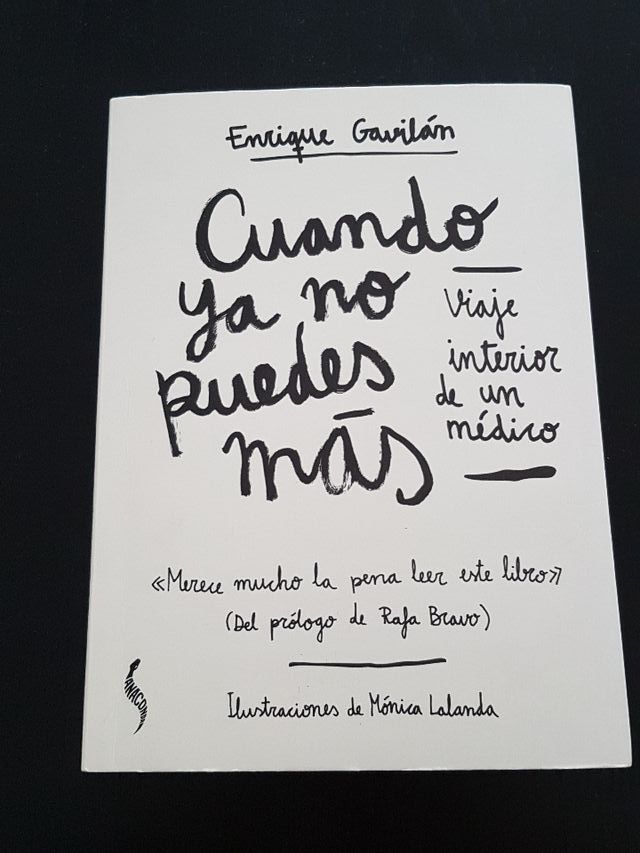 Enrique Gavilán
Cuando
ya no
puedes
más
Viaje
interior
de un
médico
«Merece mucho la pena leer este libro»
(Del prólogo de Rafa Bravo)
ANACONDA
Ilustraciones de Mónica Lalanda